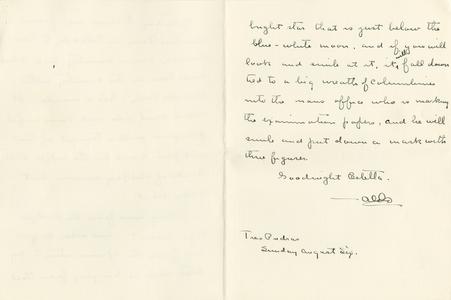 bright star that is just below the
blue-white moon, and if you will
look and smile at it, it will fall down
tied to a big wreath of Columbines
into the mans office who is marking
the examination papers, and he will
smile and put down a mark with
three figures.
Goodnight Estella.
— Aldo
Tres Piedras
Sunday August Six.